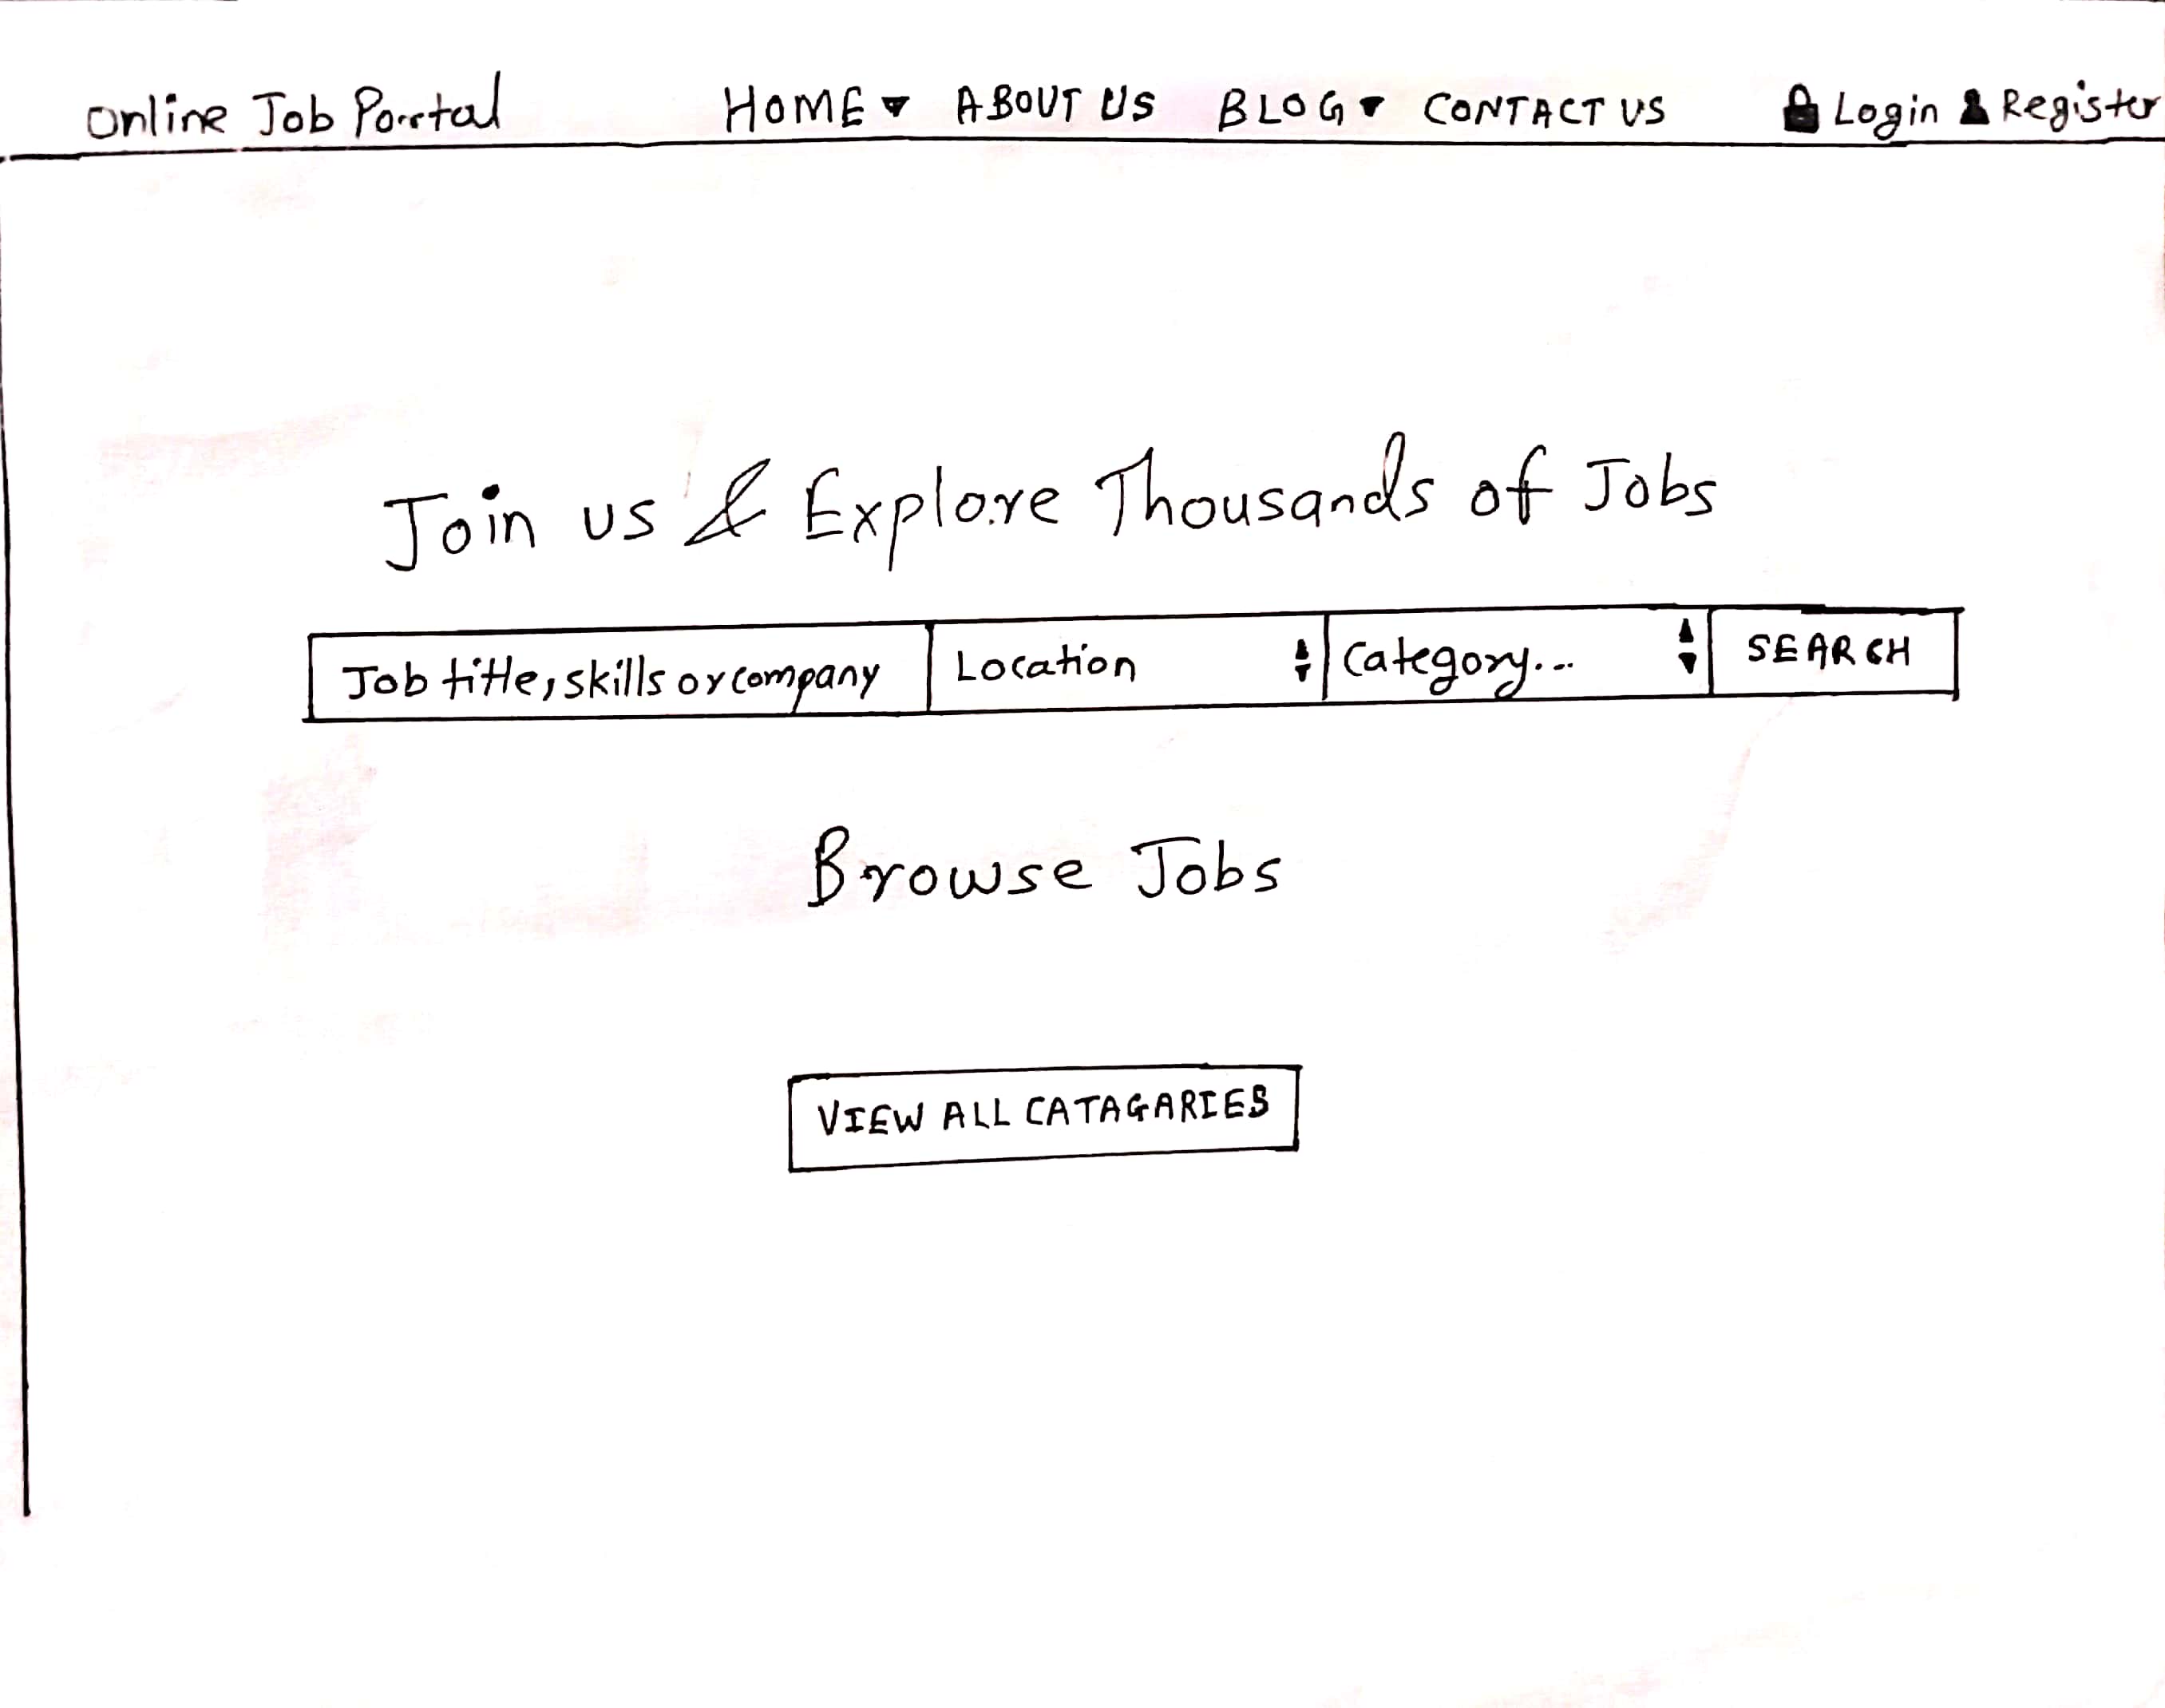 Online Job Portal HOME ▾ ABOUT US BLOG ▾ CONTACT US Login Register
Join us & Explore Thousands of Jobs
Job title, skills or company Location Category... SEARCH
Browse Jobs
VIEW ALL CATAGARIES